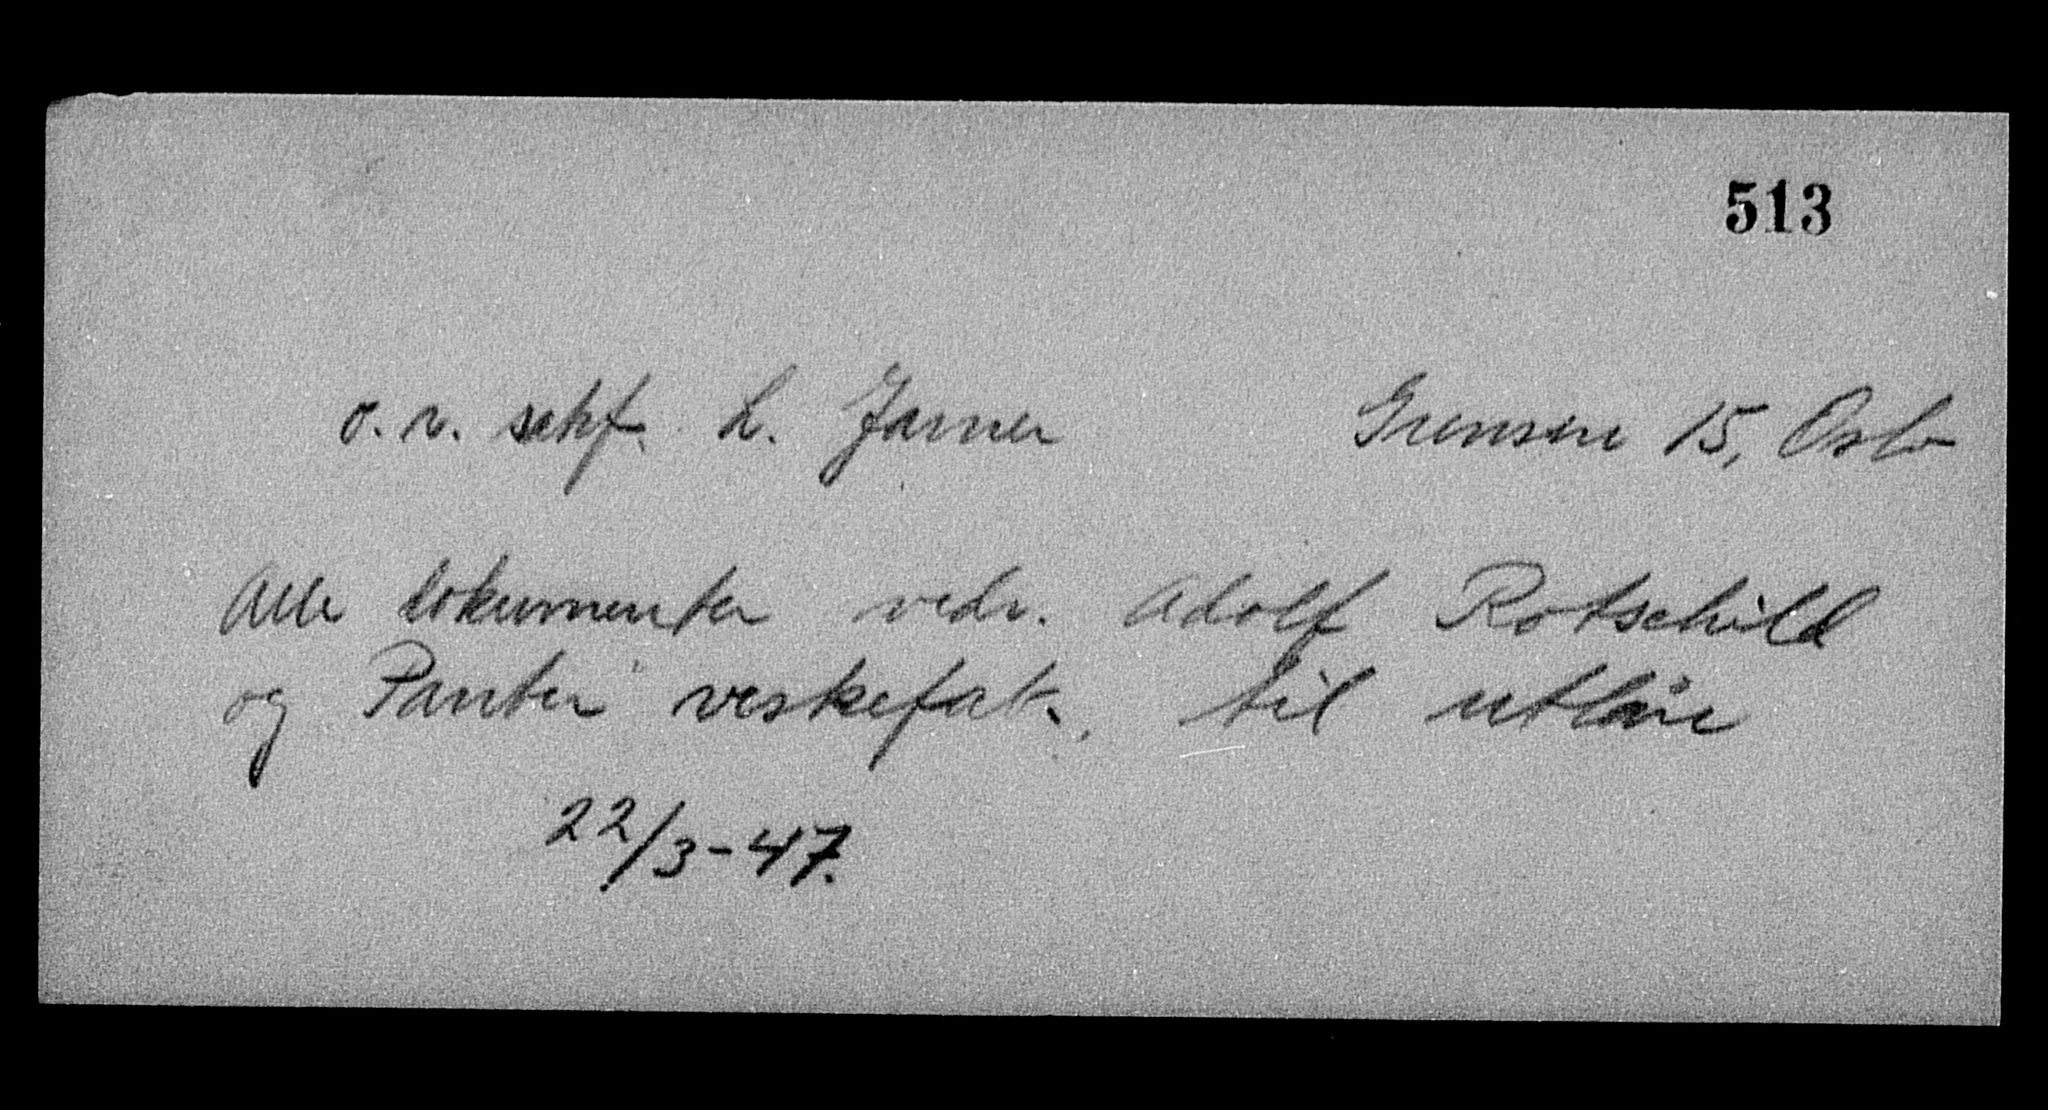 513
o. r. sakf. L. Jarner Grensen 15, Oslo
Alle dokumenter vedr. Adolf Rotschild
og Panter veskefak. til utlån
22/3-47.